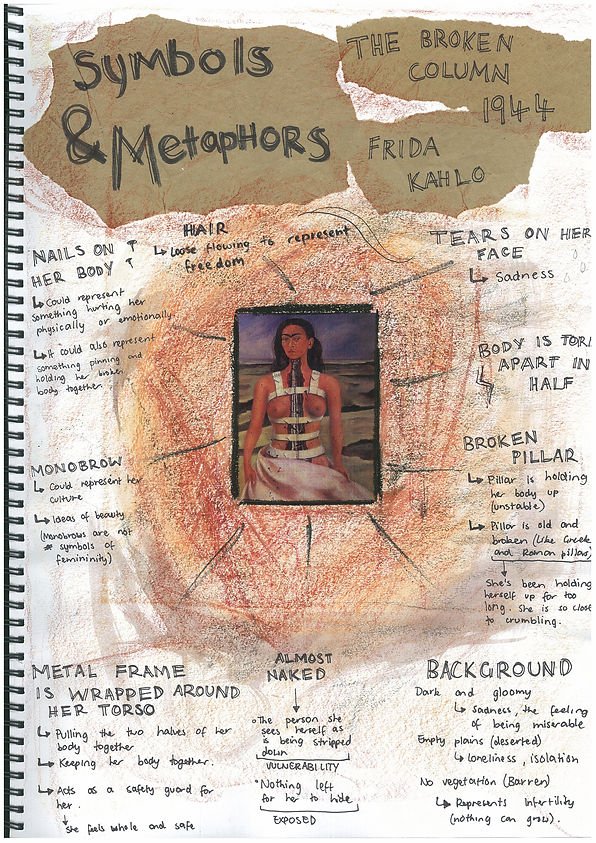 Symbols
& Metaphors
THE BROKEN
COLUMN
1944
FRIDA
KAHLO
NAILS ON
HER BODY
↳ Could represent
something hurting her
physically or emotionally
↳ It could also represent
something pinning and
holding her broken
body together
HAIR
↳ Loose flowing to represent
freedom
TEARS ON HER
FACE
↳ Sadness
BODY IS TOR
APART IN
HALF
MONOBROW
↳ Could represent her
culture
↳ Ideas of beauty
(Monobrows are not
* symbols of
femininity)
BROKEN
PILLAR
↳ Pillar is holding
her body up
(unstable)
↳ Pillar is old and
broken (Like Greek
and Roman pillars)
She's been holding
herself up for too
long. She is so close
to crumbling.
METAL FRAME
IS WRAPPED AROUND
HER TORSO
↳ Pulling the two halves of her
body together
↳ Keeping her body together.
↳ Acts as a safety guard for
her.
She feels whole and safe
ALMOST
NAKED
The person she
sees herself as
is being stripped
down
VULNERABILITY
Nothing left
for her to hide
EXPOSED
BACKGROUND
Dark and gloomy
↳ Sadness, the feeling
of being miserable
Empty plains (deserted)
↳ loneliness, isolation
No vegetation (Barren)
↳ Represents infertility
(nothing can grow).